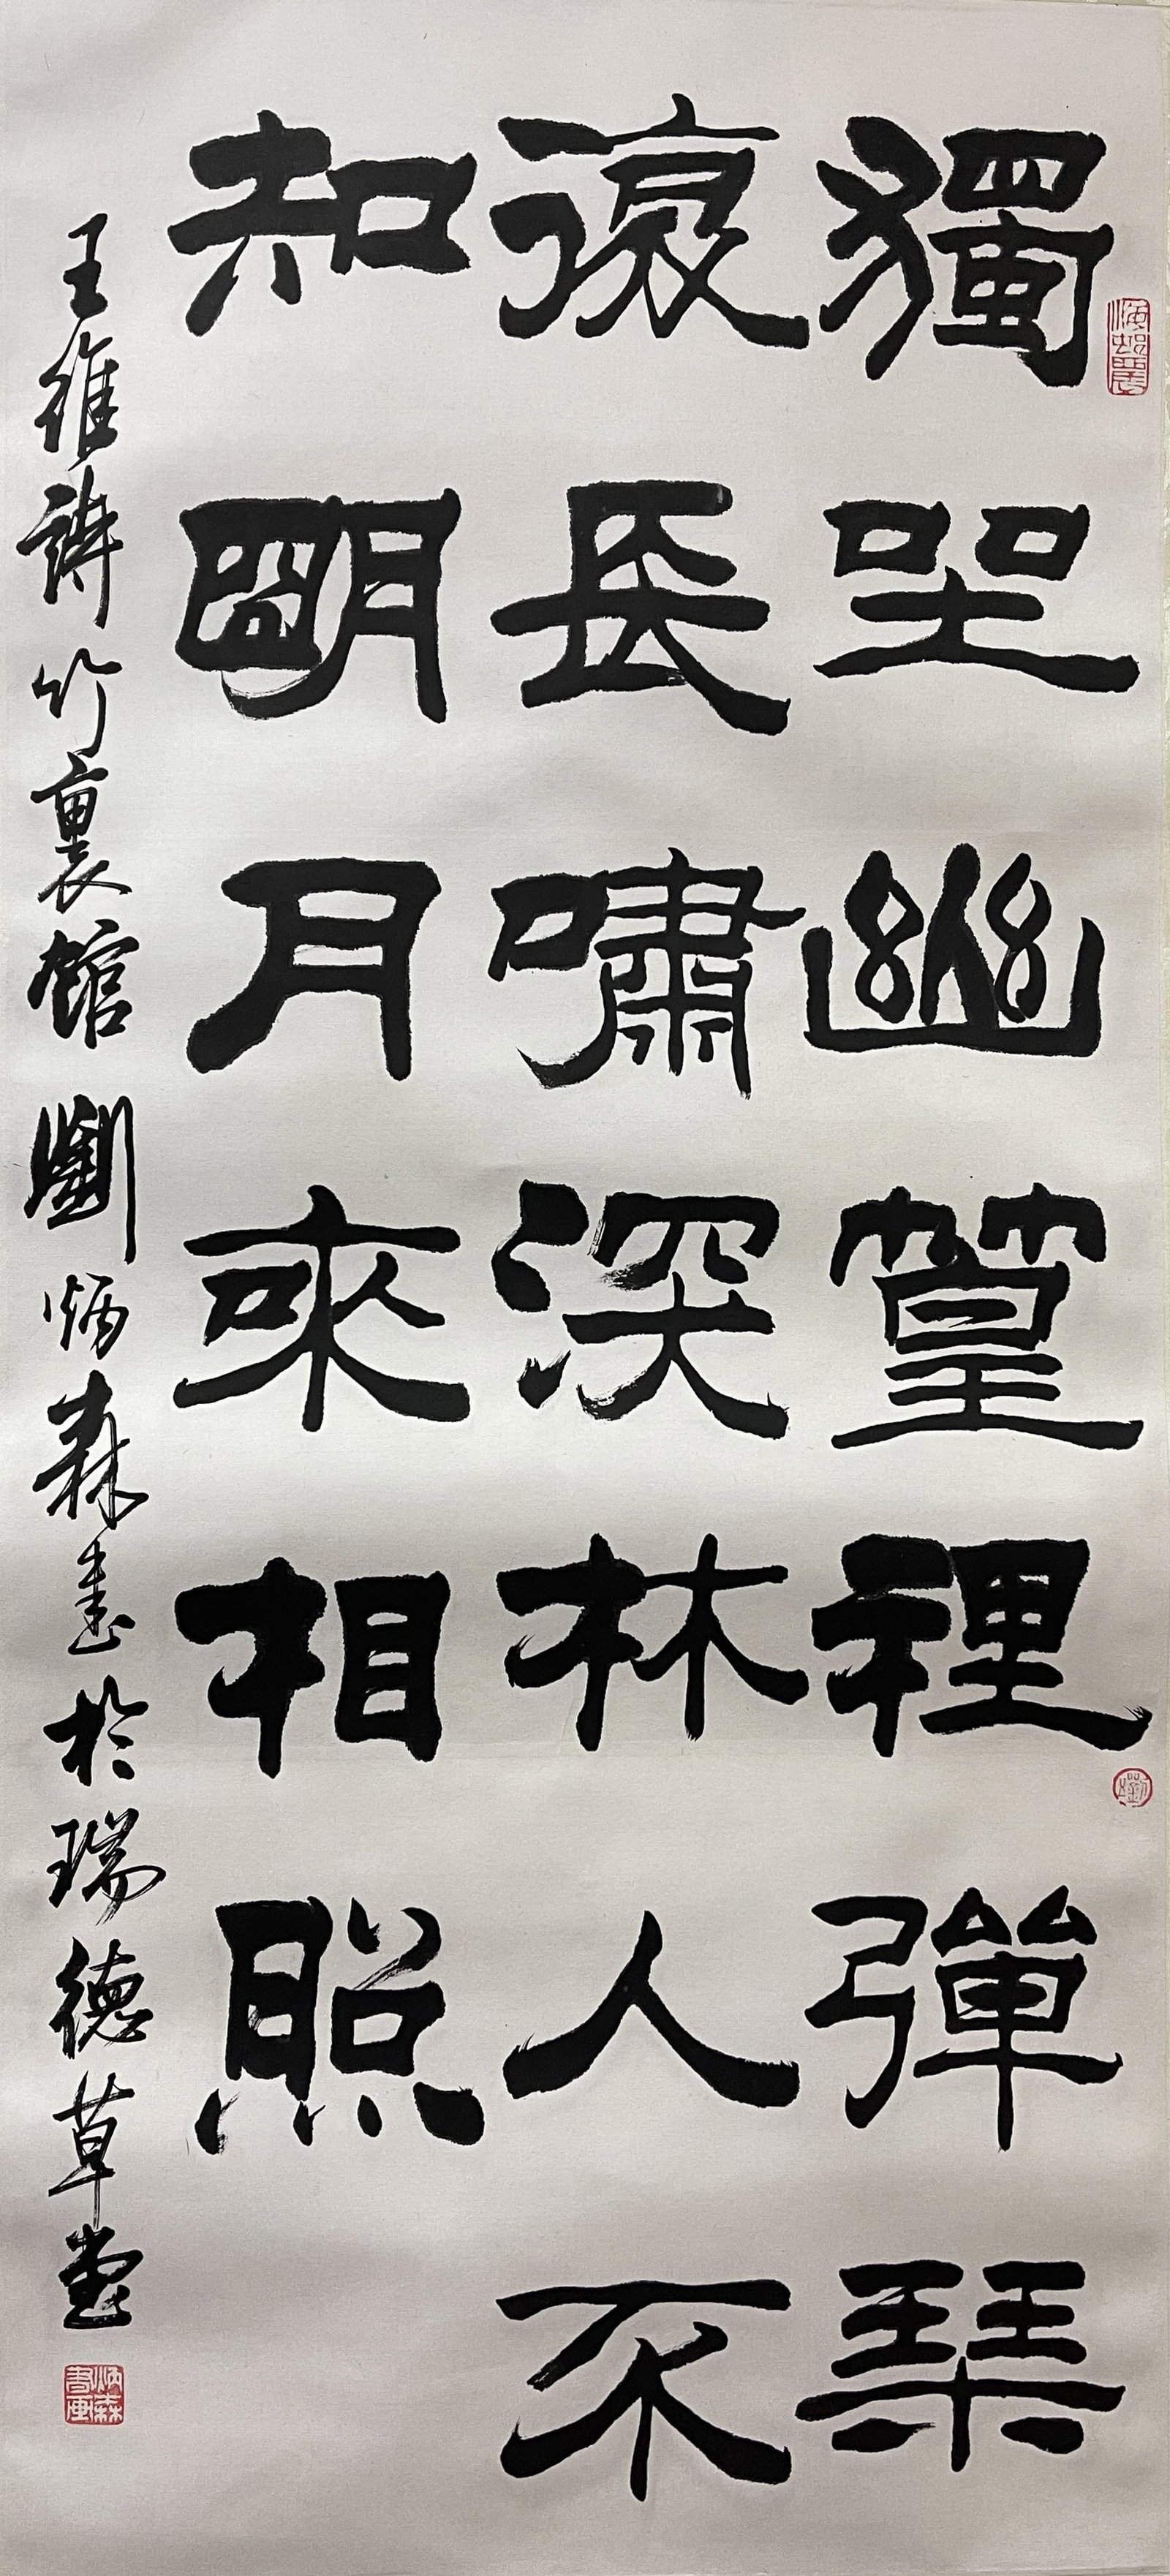 獨坐幽篁裡彈琴
復長嘯深林人不
知明月來相照
王維詩竹裏館 劉炳森書於瑞德草堂
劉
炳森書画